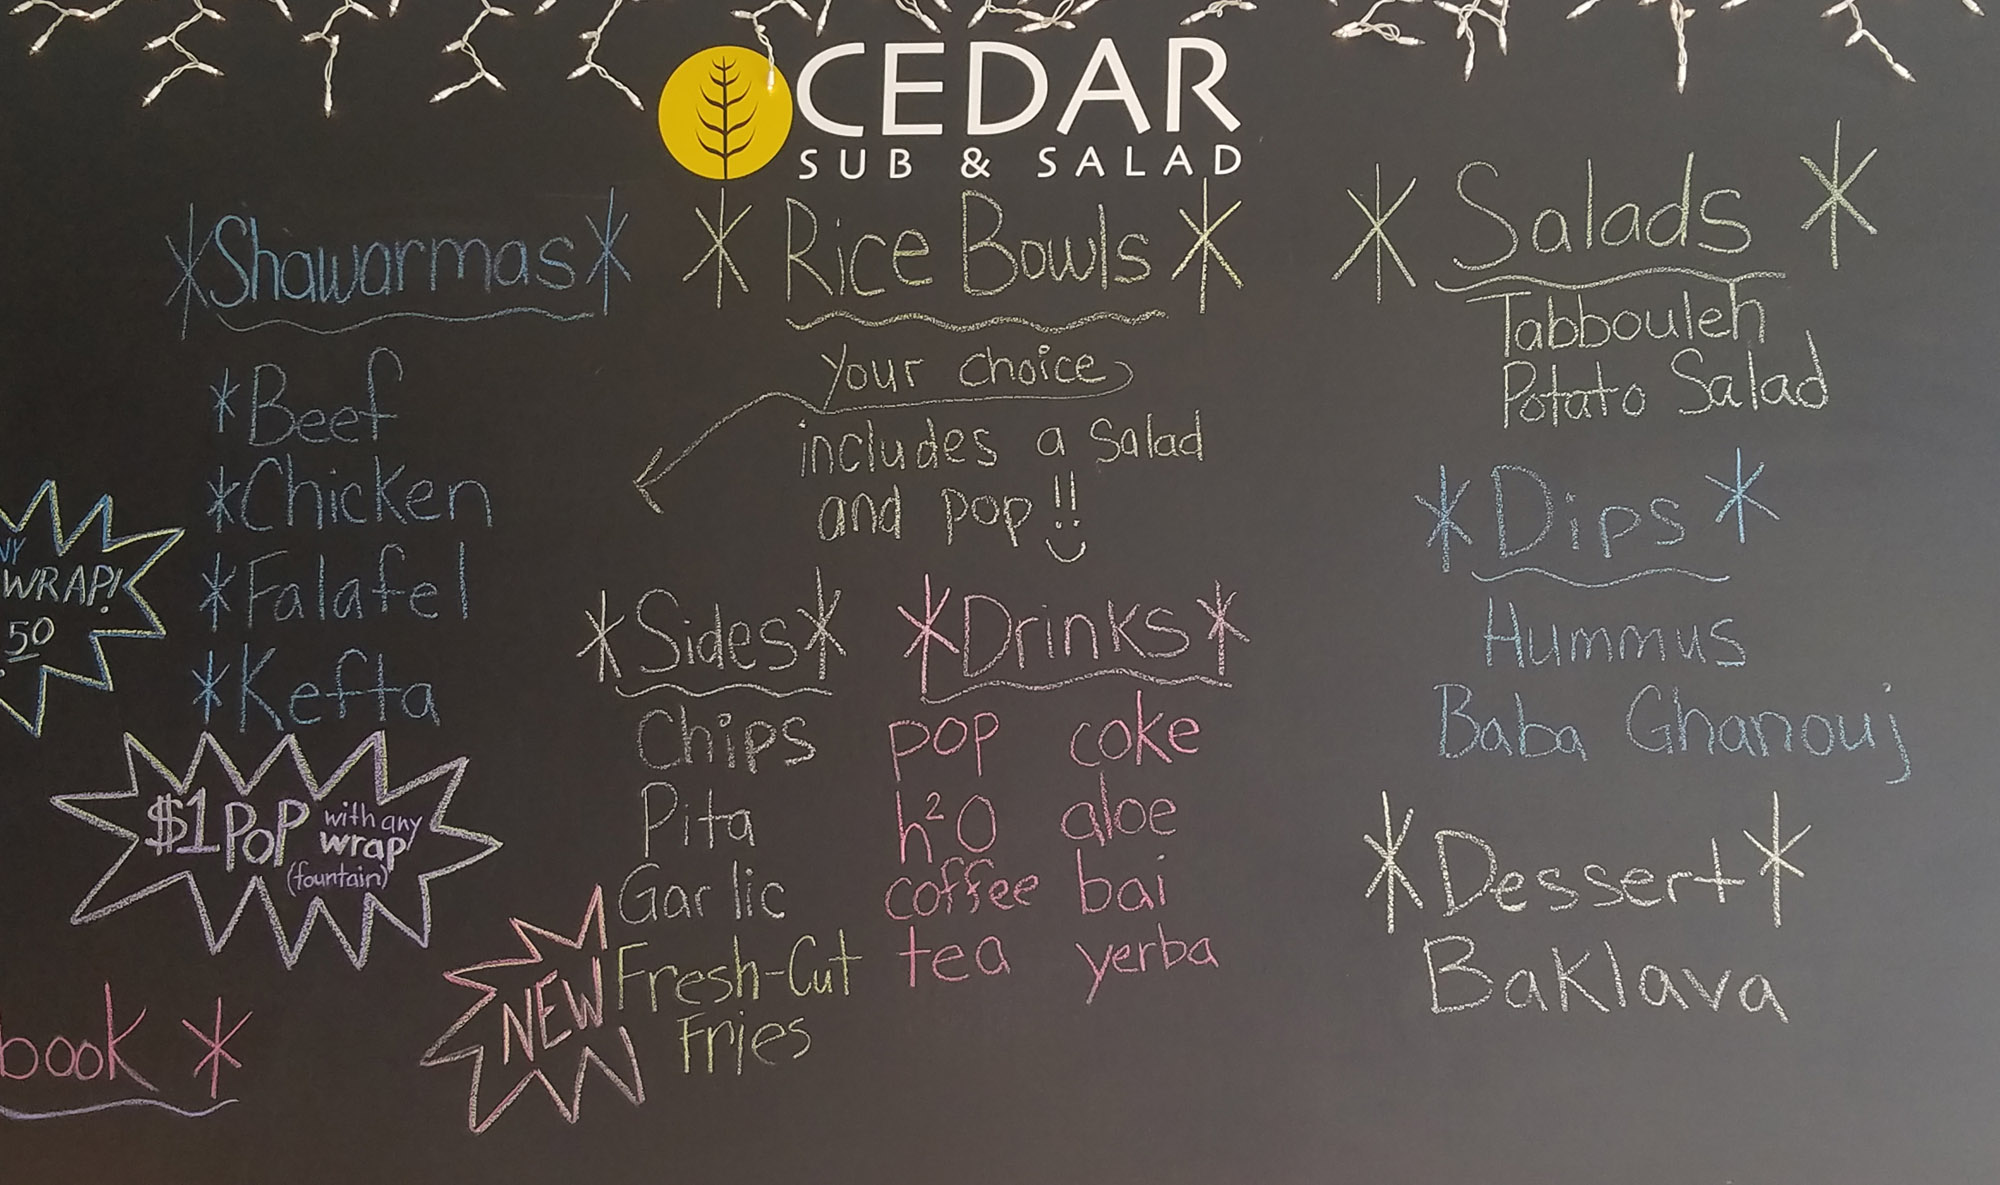 CEDAR
SUB & SALAD
*Shawarmas*
*Beef
*Chicken
*Falafel
*Kefta
WRAP!
50
$1 POP with any wrap
(fountain)
book *
* Rice Bowls *
your choice
includes a salad
and pop!!
*Sides*
Chips
Pita
Garlic
NEW
Fresh-Cut
Fries
*Drinks*
pop coke
h²O aloe
coffee bai
tea yerba
* Salads *
Tabbouleh
Potato Salad
*Dips*
Hummus
Baba Ghanouj
*Dessert*
Baklava